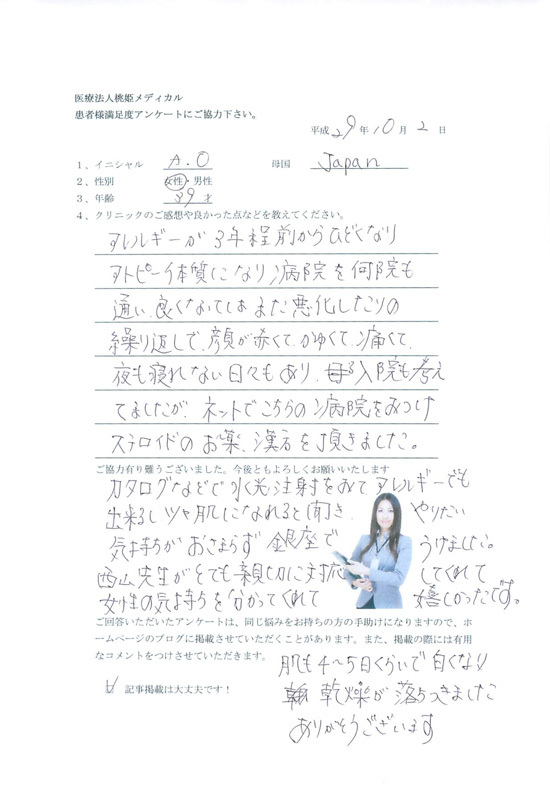 医療法人桃姫メディカル
患者様満足度アンケートにご協力下さい。
平成 29 年 10 月 2 日
1、イニシャル A.O 母国 Japan
2、性別 女性・男性
3、年齢 39 才
4、クリニックのご感想や良かった点などを教えてください。
アレルギーが3年程前からひどくなり
アトピー体質になり病院を何院も
通い、良くなってはまた悪化したりの
繰り返しで、顔が赤くて、かゆくて、痛くて、
夜も寝れない日々もあり、入院も考え
てましたが、ネットでこちらの病院をみつけ
ステロイドのお薬、漢方を頂きました。
ご協力有り難うございました。今後ともよろしくお願いいたします
カタログなどで水光注射をみてアレルギーでも
出来るしツヤ肌になれると聞き、やりたい
気持ちがおさまらず銀座でうけました。
西山先生がとても親切に対応してくれて
女性の気持ちを分かってくれて嬉しかったです。
ご回答いただいたアンケートは、同じ悩みをお持ちの方の手助けになりますので、ホ
ームページのブログに掲載させていただくことがあります。また、掲載の際には有用
なコメントをつけさせていただきます。
肌も4〜5日くらいで白くなり
記事掲載は大丈夫です！
乾燥が落ちつきました
ありがとうございます